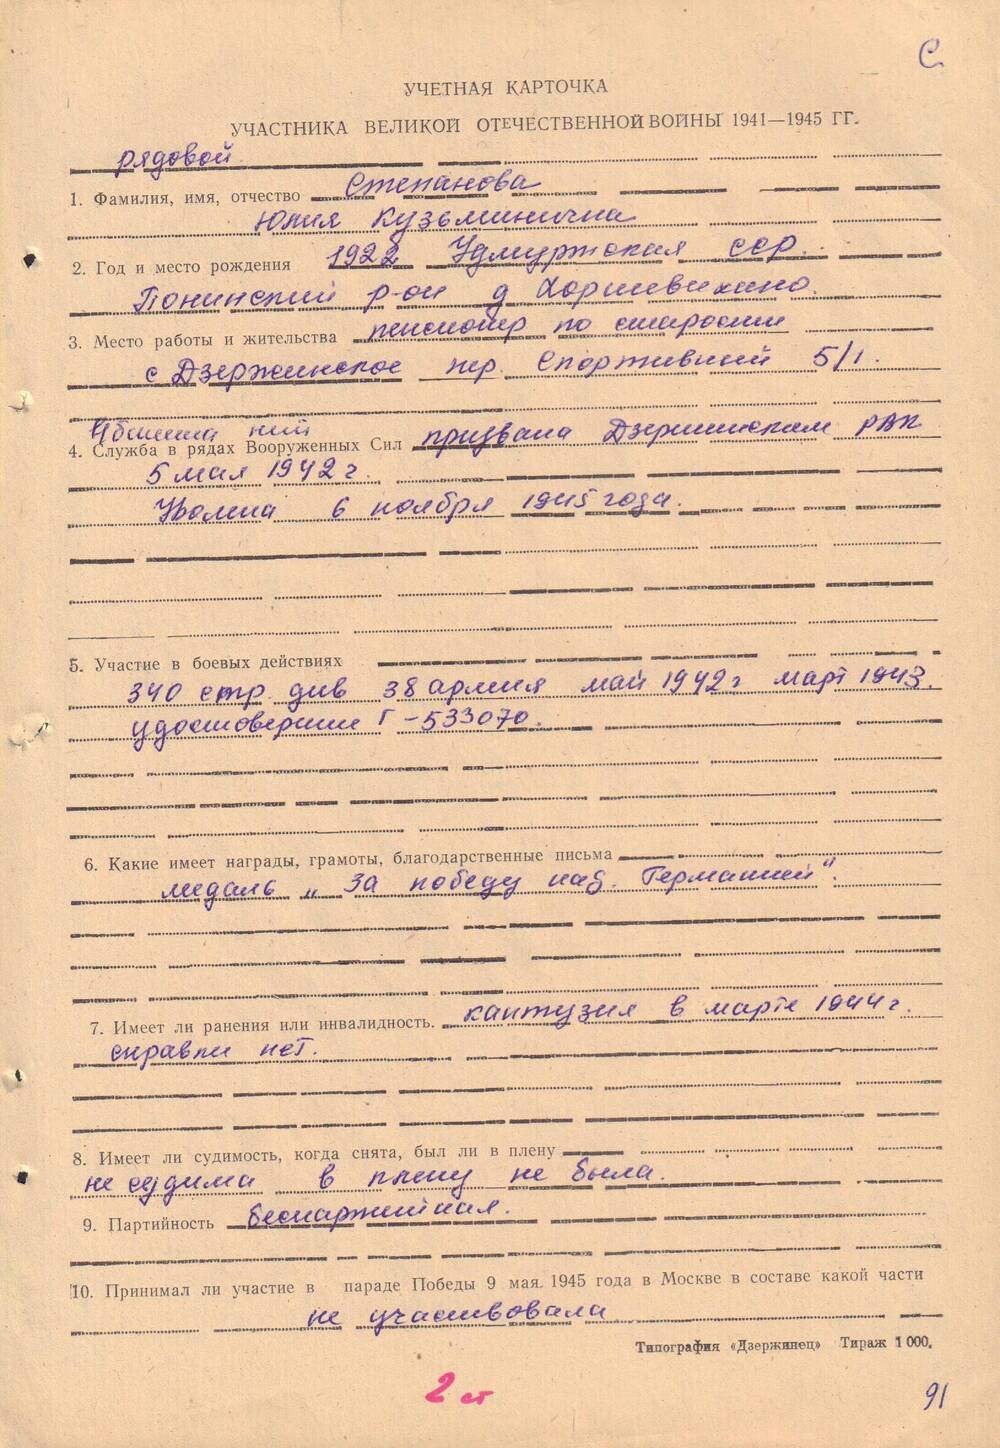 С
УЧЕТНАЯ КАРТОЧКА
УЧАСТНИКА ВЕЛИКОЙ ОТЕЧЕСТВЕННОЙ ВОЙНЫ 1941—1945 ГГ.
рядовой
1. Фамилия, имя, отчество Степанова
Юлия Кузьминична
2. Год и место рождения 1922 Удмуртская ССР.
Понинский р-он д
3. Место работы и жительства пенсионер по старости
с Дзержинское пер. Спортивный 5/1.
4. Служба в рядах Вооруженных Сил призвана Дзержинским РВК
5 мая 1942 г.
Уволена 6 ноября 1945 года.
5. Участие в боевых действиях
340 стр. див 38 армия май 1942 г март 1943.
Г-533070.
6. Какие имеет награды, грамоты, благодарственные письма
медаль „За победу над. Германией".
7. Имеет ли ранения или инвалидность. контузия в марте 1944 г.
справки нет.
8. Имеет ли судимость, когда снята, был ли в плену
не судима в плену не была.
9. Партийность беспартийная.
10. Принимал ли участие в параде Победы 9 мая 1945 года в Москве в составе какой части
не участвовала
Типография «Дзержинец» Тираж 1000.
2 ст
91